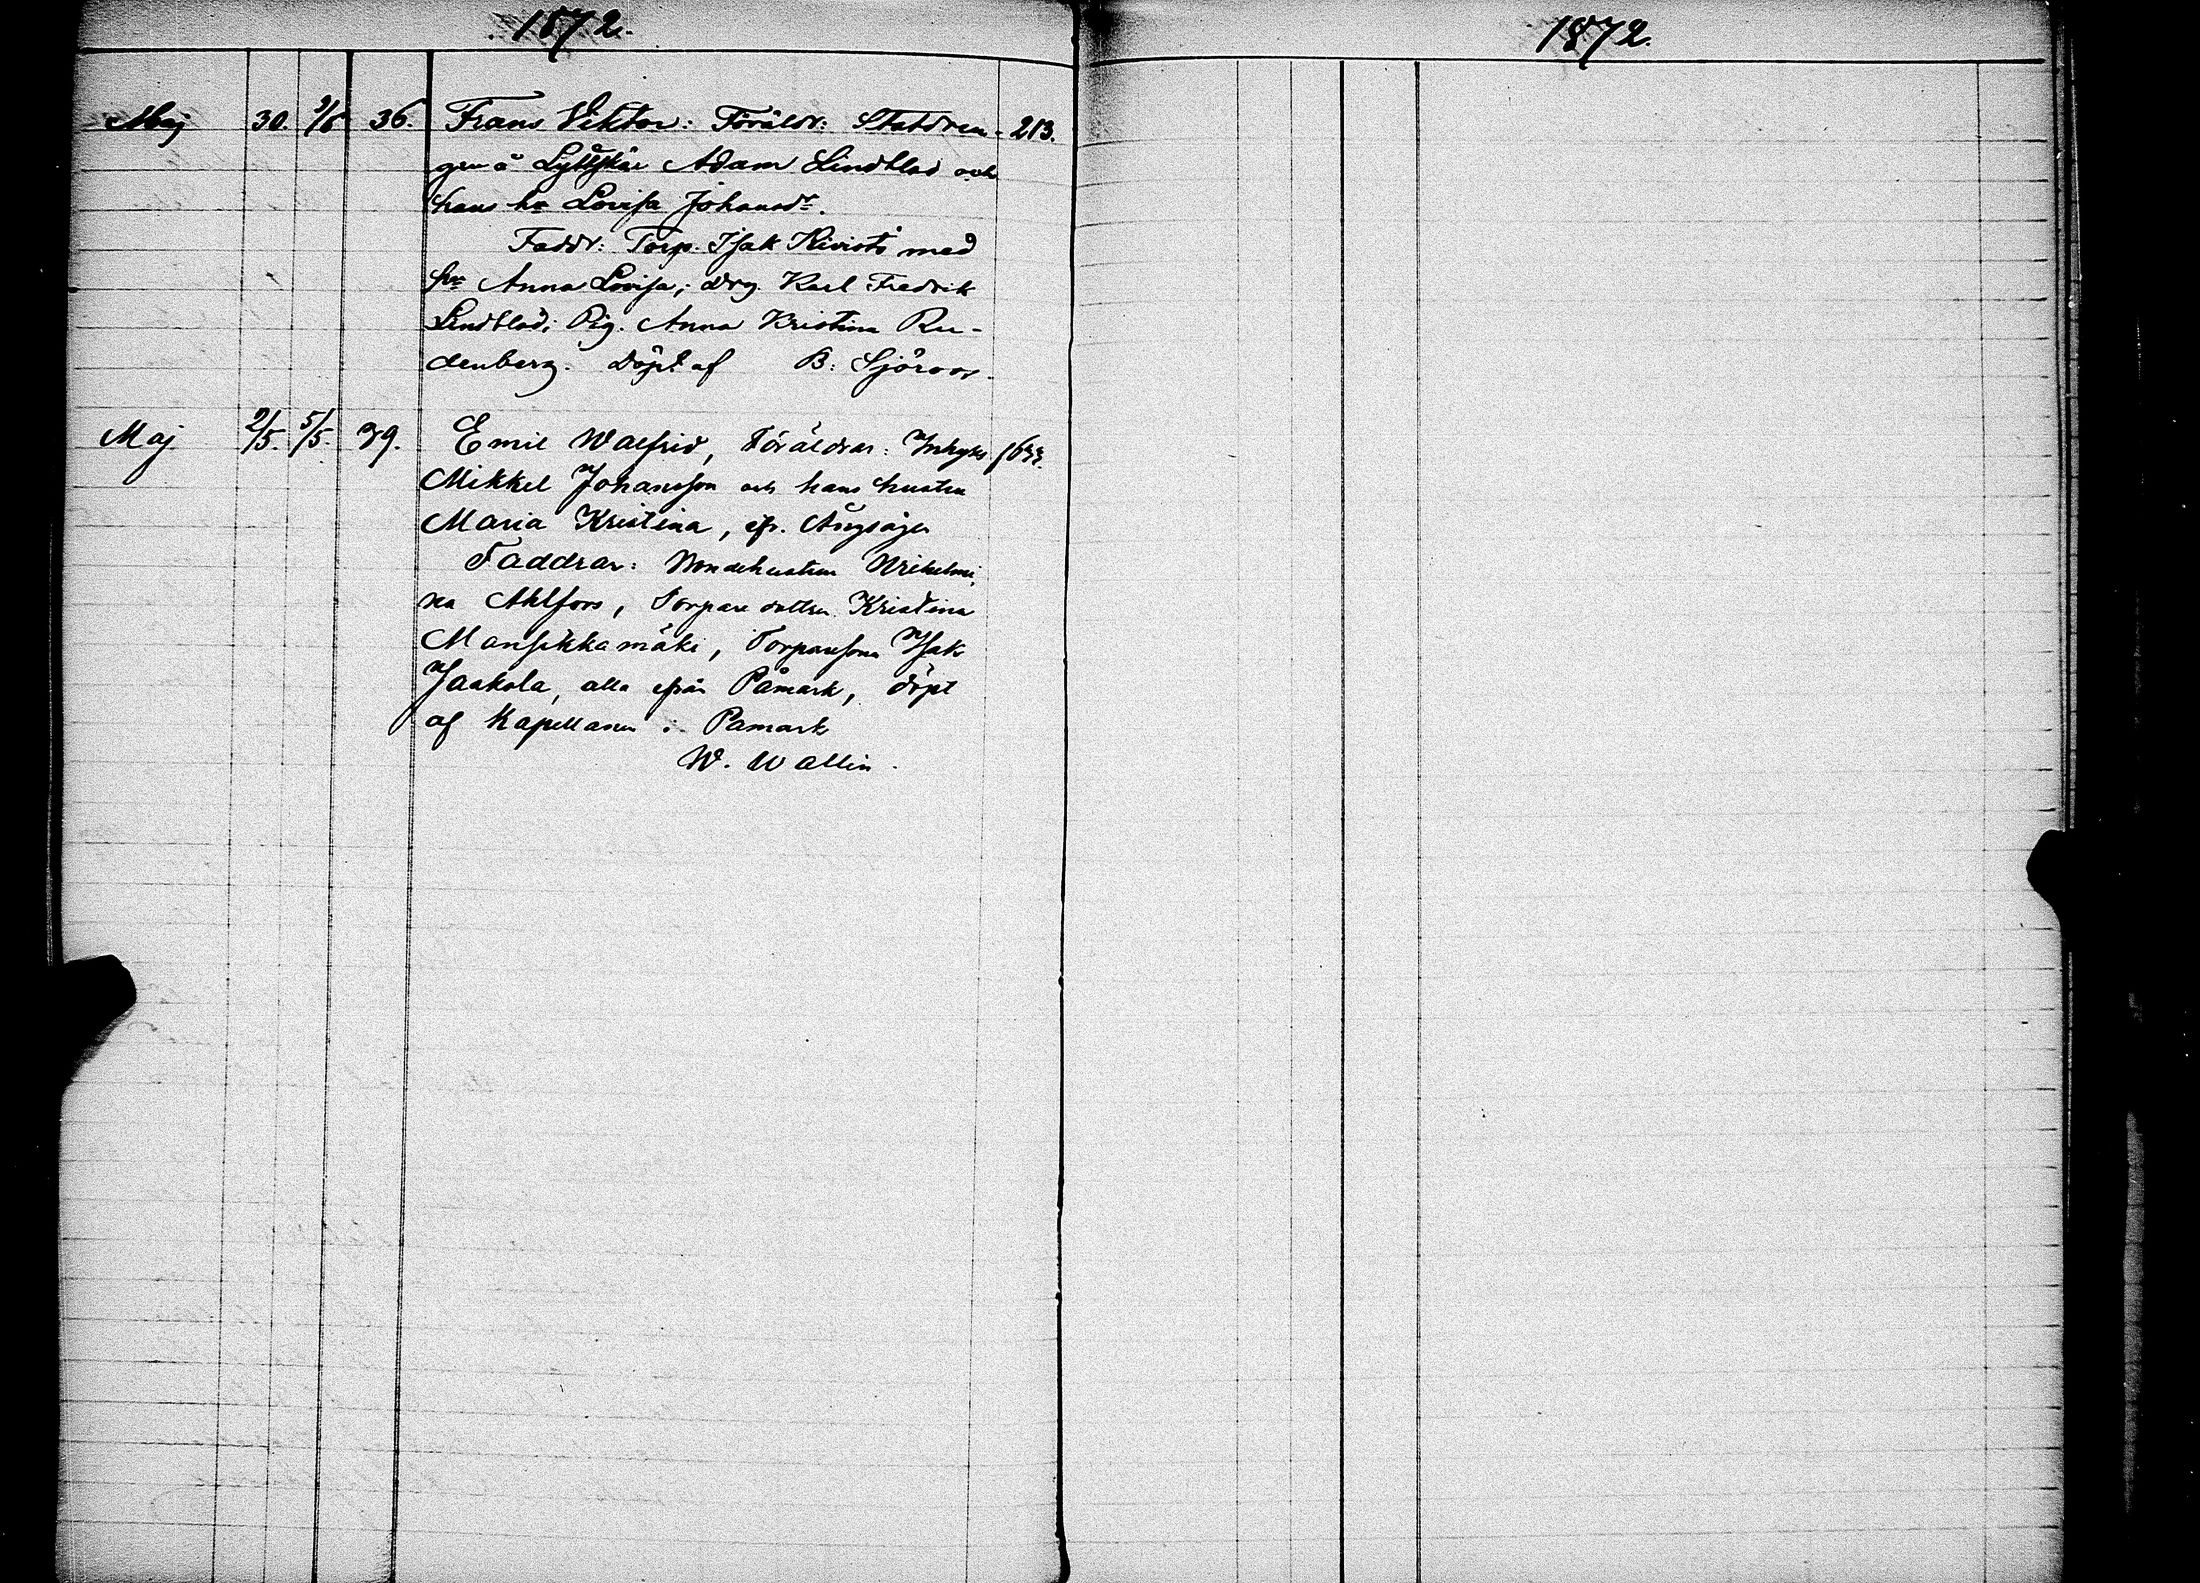 1872.
1872.
Maj 30. 9/6 36. Frans Viktor: Föräldr: Statdren- 213.
gen å Lyttskär Adam Lindblad och
hans hu Lovisa Johansdr.
Faddr: Torp. Isak Kivistö med
hu Anna Lovisa; drg. Karl Fredrik
Lindblad; Pig. Anna Kristina Ru-
denberg. Döpt af B: Sjöroos.
Maj 2/5. 5/5. 39. Emil Walfrid, Föräldrar: Inhyses
Mikkel Johansson och hans hustru
Maria Kristina, fr.
Faddrar: Bondehustrun Wilhelmi,
na Ahlfors, Torpare dottren Kristina
Mansikkamäki, Torparesonen Isak
Jaakola, alla från Påmark, döpt
af Kapellanen i Påmark
W. Wallin.